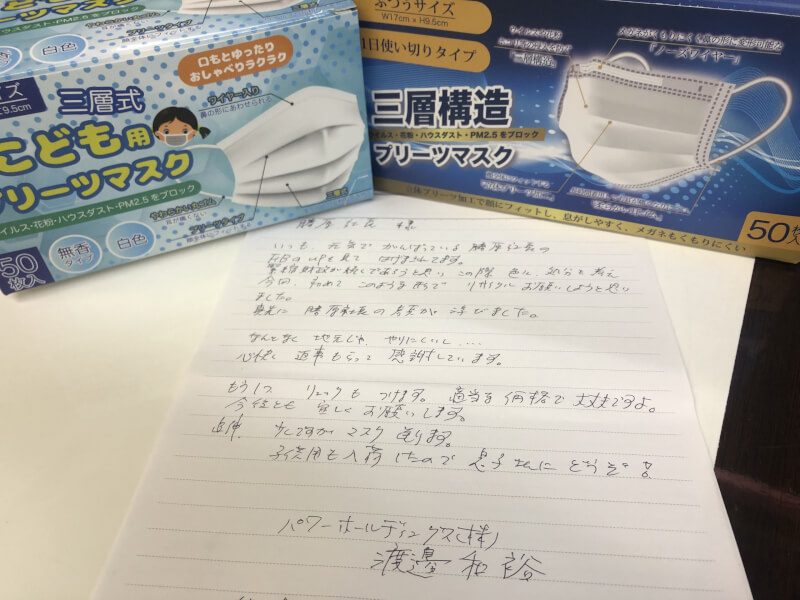 三層式
こども用
プリーツマスク
イルス・花粉・ハウスダスト・PM2.5をブロック
50枚入
無香
タイプ
白色
白色
口もとゆったり
おしゃべりラクラク
ワイヤー入り
鼻の形にあわせられる
プリーツタイプ
三層式
ふつうサイズ
W17cm×H9.5cm
1日使い切りタイプ
三層構造
イルス・花粉・ハウスダスト・PM2.5をブロック
プリーツマスク
「ノーズワイヤー」
立体プリーツ加工で顔にフィットし、息がしやすく、メガネもくもりにくい
50枚
様
いつも、元気で がんばっている 社長の
FBのupを見て はげまされてます。
今回、初めて このような形で リサイクル お願いしようと思い
ました。
真先に 社長の 顔が 浮びました。
なんとなく 地元じゃ、やりにくいし....
心快く 返事もらって 感謝しています。
もう1つ リュックも つけます。 適当な価格で 大丈夫ですよ。
今後とも 宜しく お願いします。
追伸 少しですが マスク 送ります。
子供用も 入荷 したので 息子さんに どうぞ!
パワーホールディングス(株)
渡邉 和裕